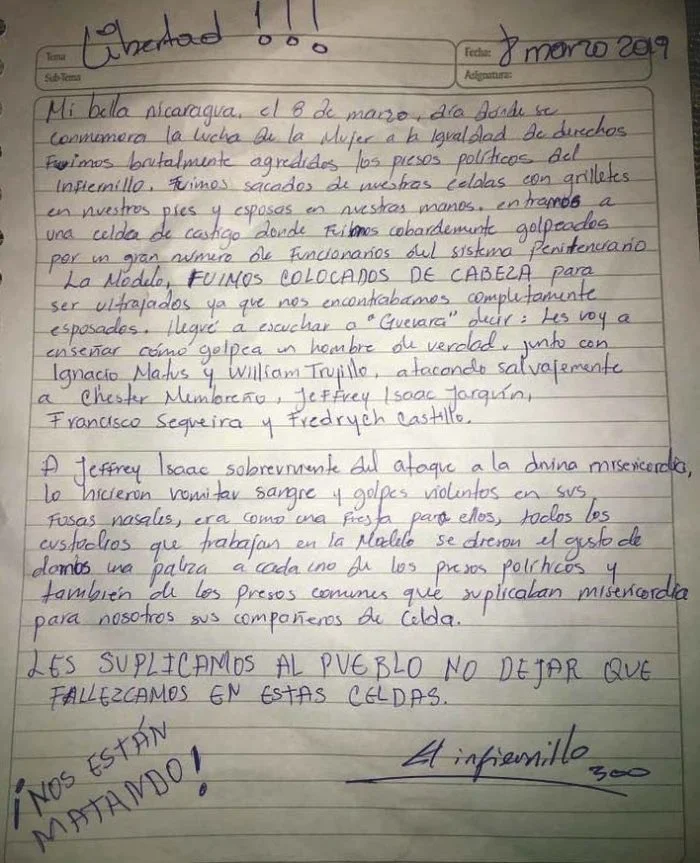 Libertad !!!
Tema
Sub-Tema
Fecha: 8 marzo 2019
Asignatura:
Mi bella nicaragua, el 8 de marzo, dia donde se
conmemora la lucha de la Mujer a la Igualdad de derechos
Fuimos brutalmente agredidos los presos politicos del
Infiernillo. Fuimos sacados de nuestras celdas con grilletes
en nuestros pies y esposas en nuestras manos. entramos a
una celda de castigo donde Fuimos cobardemente golpeados
por un gran numero de Funcionarios del sistema Penitenciario
La Modelo, FUIMOS COLOCADOS DE CABEZA para
ser ultrajados ya que nos encontrabamos completamente
esposados. llegué a escuchar a "Guevara" decir: Les voy a
enseñar cómo golpea un hombre de verdad. junto con
Ignacio Matus y William Trujillo, atacando salvajemente
a Chester Membreño, Jeffrey Isaac Jarquín,
Francisco Sequeira y Fredrych Castillo.
A Jeffrey Isaac sobreviviente del ataque a la divina misericordia,
lo hicieron vomitar sangre y golpes violentos en sus
Fosas nasales, era como una fiesta para ellos, todos los
custodios que trabajan en la Modelo se dieron el gusto de
darnos una paliza a cada uno de los presos politicos y
también de los presos comunes que suplicaban misericordia
para nosotros sus compañeros de Celda.
LES SUPLICAMOS AL PUEBLO NO DEJAR QUE
FALLEZCAMOS EN ESTAS CELDAS.
¡NOS ESTÁN
MATANDO!
El infiernillo
300